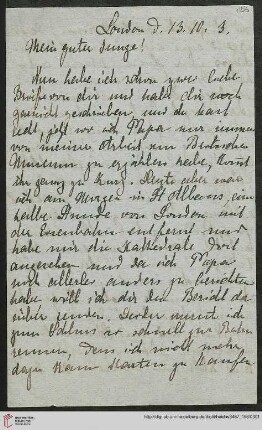 London d. 13. 10. 3.
Mein guter Junge!
Nun habe ich schon zwei liebe
Briefe von dir und habe dir noch
garnicht geschrieben und du hast
recht, jetzt wo ich Papa nur immer
von meiner Arbeit im Britischen
Museum zu erzählen habe, kommst
ihr ganz zu kurz. Heute aber war
ich am Morgen in St Albans, eine
halbe Stunde von London mit
der Eisenbahn entfernt und
habe mir die Kathedrale dort
angesehen und da ich Papa
noch allerlei anders zu berichten
habe will ich dir den Bericht da
rüber senden. Leider musst ich
zum Schluss so schnell zur Bahn
rennen, dass ich nicht mehr
dazu kam Karten zu kaufen